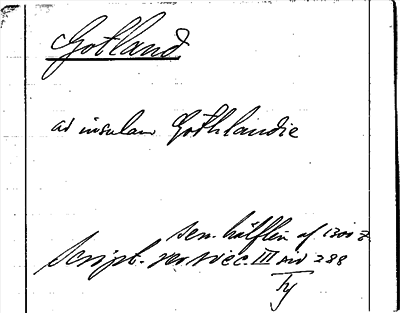 Gotland
ad insulam Gothlandie
sen. hälften af 1300 t.
Script. rer. svec. III sid 288
Ty